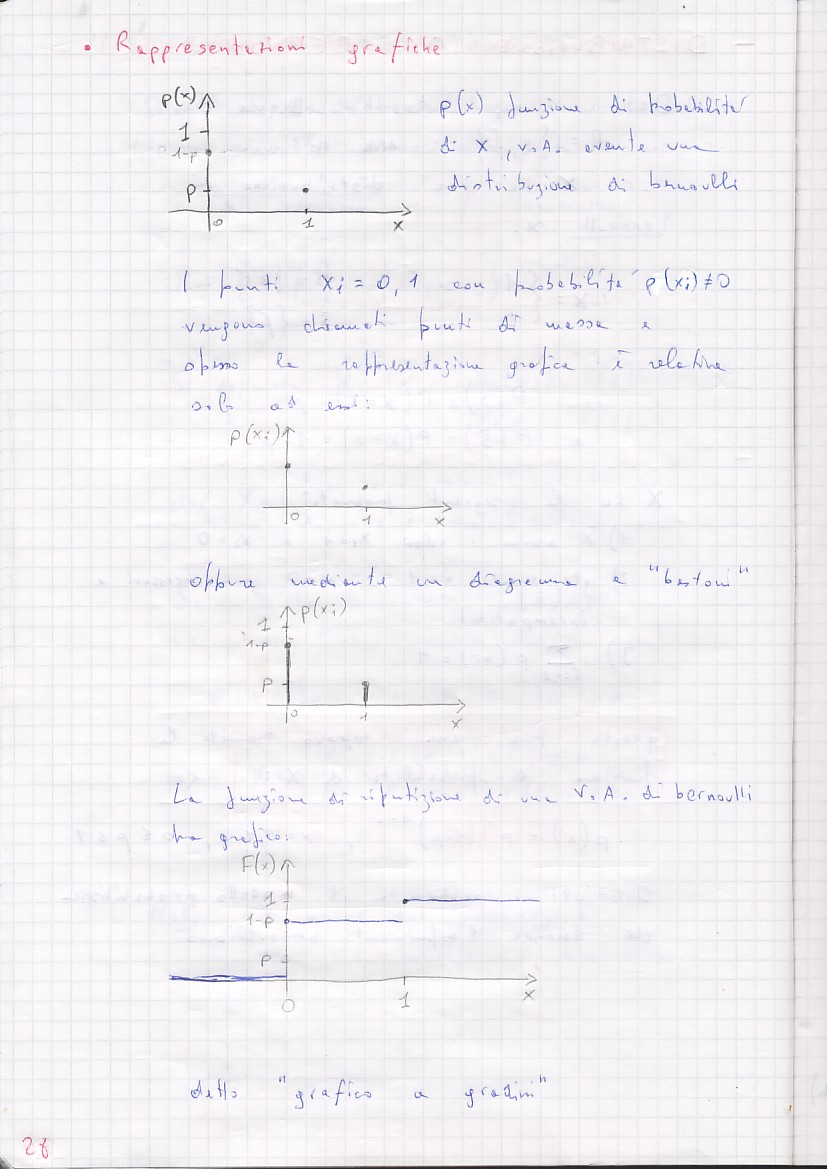 • Rappresentazioni grafiche
p(x)
1
1-p
p
0 1 x
p(x) funzione di probabilita'
di X, v.A. avente una
distribuzione di bernoulli
I punti xi = 0, 1 con probabilita' p(xi) ≠ 0
vengono chiamati punti di massa e
spesso la rappresentazione grafica è relativa
solo ad essi:
p(xi)
0 1 x
oppure mediante un diagramma a "bastoni"
p(xi)
1
1-p
p
0 1 x
La funzione di ripartizione di una V.A. di bernoulli
ha grafico:
F(x)
1
1-p
p
0 1 x
detto "grafico a gradini"
28